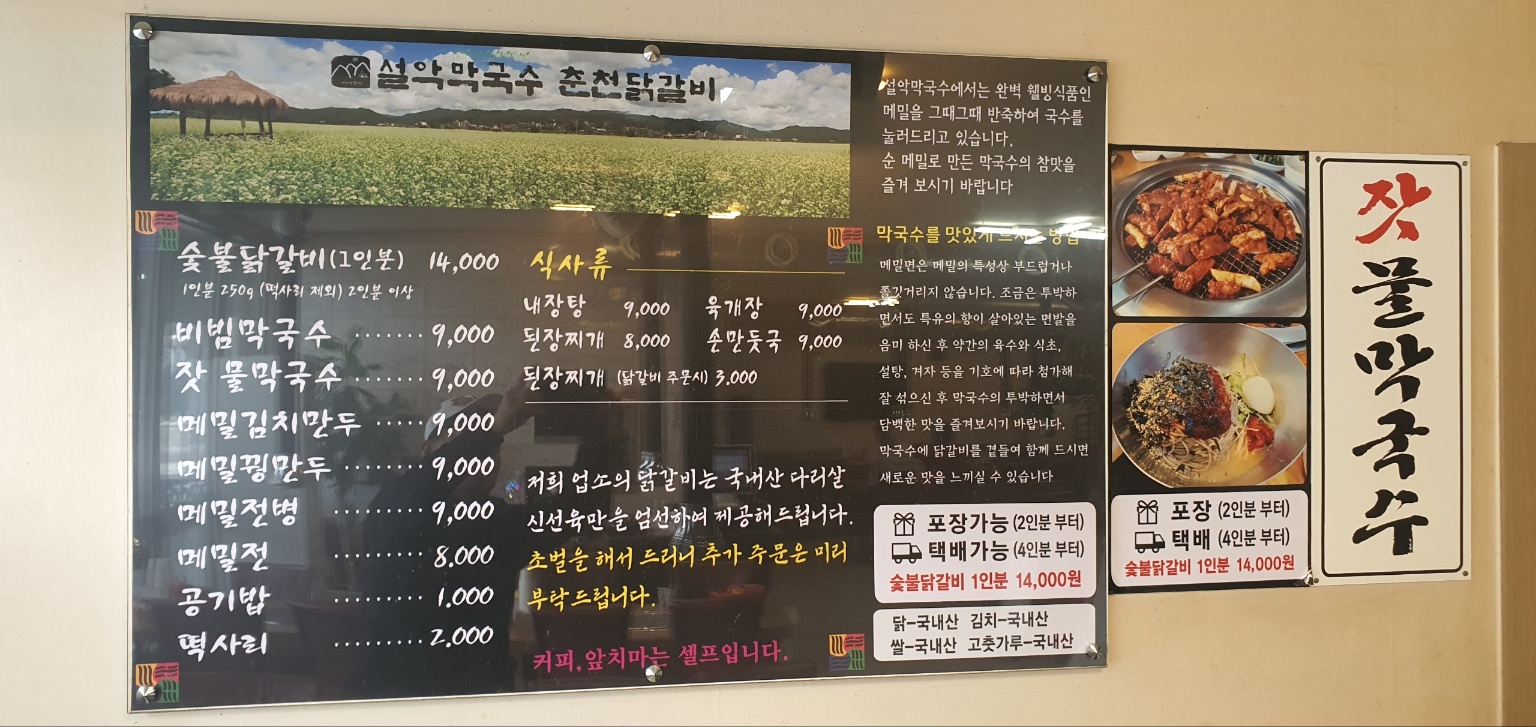 설악막국수 춘천닭갈비
숯불닭갈비(1인분) 14,000
1인분 250g (떡사리 제외) 2인분 이상
비빔막국수 ······· 9,000
잣 물막국수 ······· 9,000
메밀김치만두 ····· 9,000
메밀꿩만두 ········ 9,000
메밀전병 ········· 9,000
메밀전 ········· 8.000
공기밥 ········· 1.000
떡사리 ········· 2.000
식사류
내장탕 9,000 육개장 9,000
된장찌개 8,000 손만둣국 9,000
된장찌개 (닭갈비 주문시) 3.000
저희 업소의 닭갈비는 국내산 다리살
신선육만을 엄선하여 제공해드립니다.
초벌을 해서 드리니 추가 주문은 미리
부탁드립니다.
커피,앞치마는 셀프입니다.
설악막국수에서는 완벽 웰빙식품인
메밀을 그때그때 반죽하여 국수를
눌러드리고 있습니다.
순 메밀로 만든 막국수의 참맛을
즐겨 보시기 바랍니다
막국수를 맛있게 드시는 방법
메밀면은 메밀의 특성상 부드럽거나
쫄깃거리지 않습니다. 조금은 투박하
면서도 특유의 향이 살아있는 면발을
음미 하신 후 약간의 육수와 식초,
설탕, 겨자 등을 기호에 따라 첨가해
잘 섞으신 후 막국수의 투박하면서
담백한 맛을 즐겨보시기 바랍니다.
막국수에 닭갈비를 곁들여 함께 드시면
새로운 맛을 느끼실 수 있습니다
포장가능 (2인분 부터)
택배가능 (4인분 부터)
숯불닭갈비 1인분 14,000원
닭-국내산 김치-국내산
쌀-국내산 고춧가루-국내산
포장 (2인분 부터)
택배 (4인분 부터)
숯불닭갈비 1인분 14,000원
잣물막국수